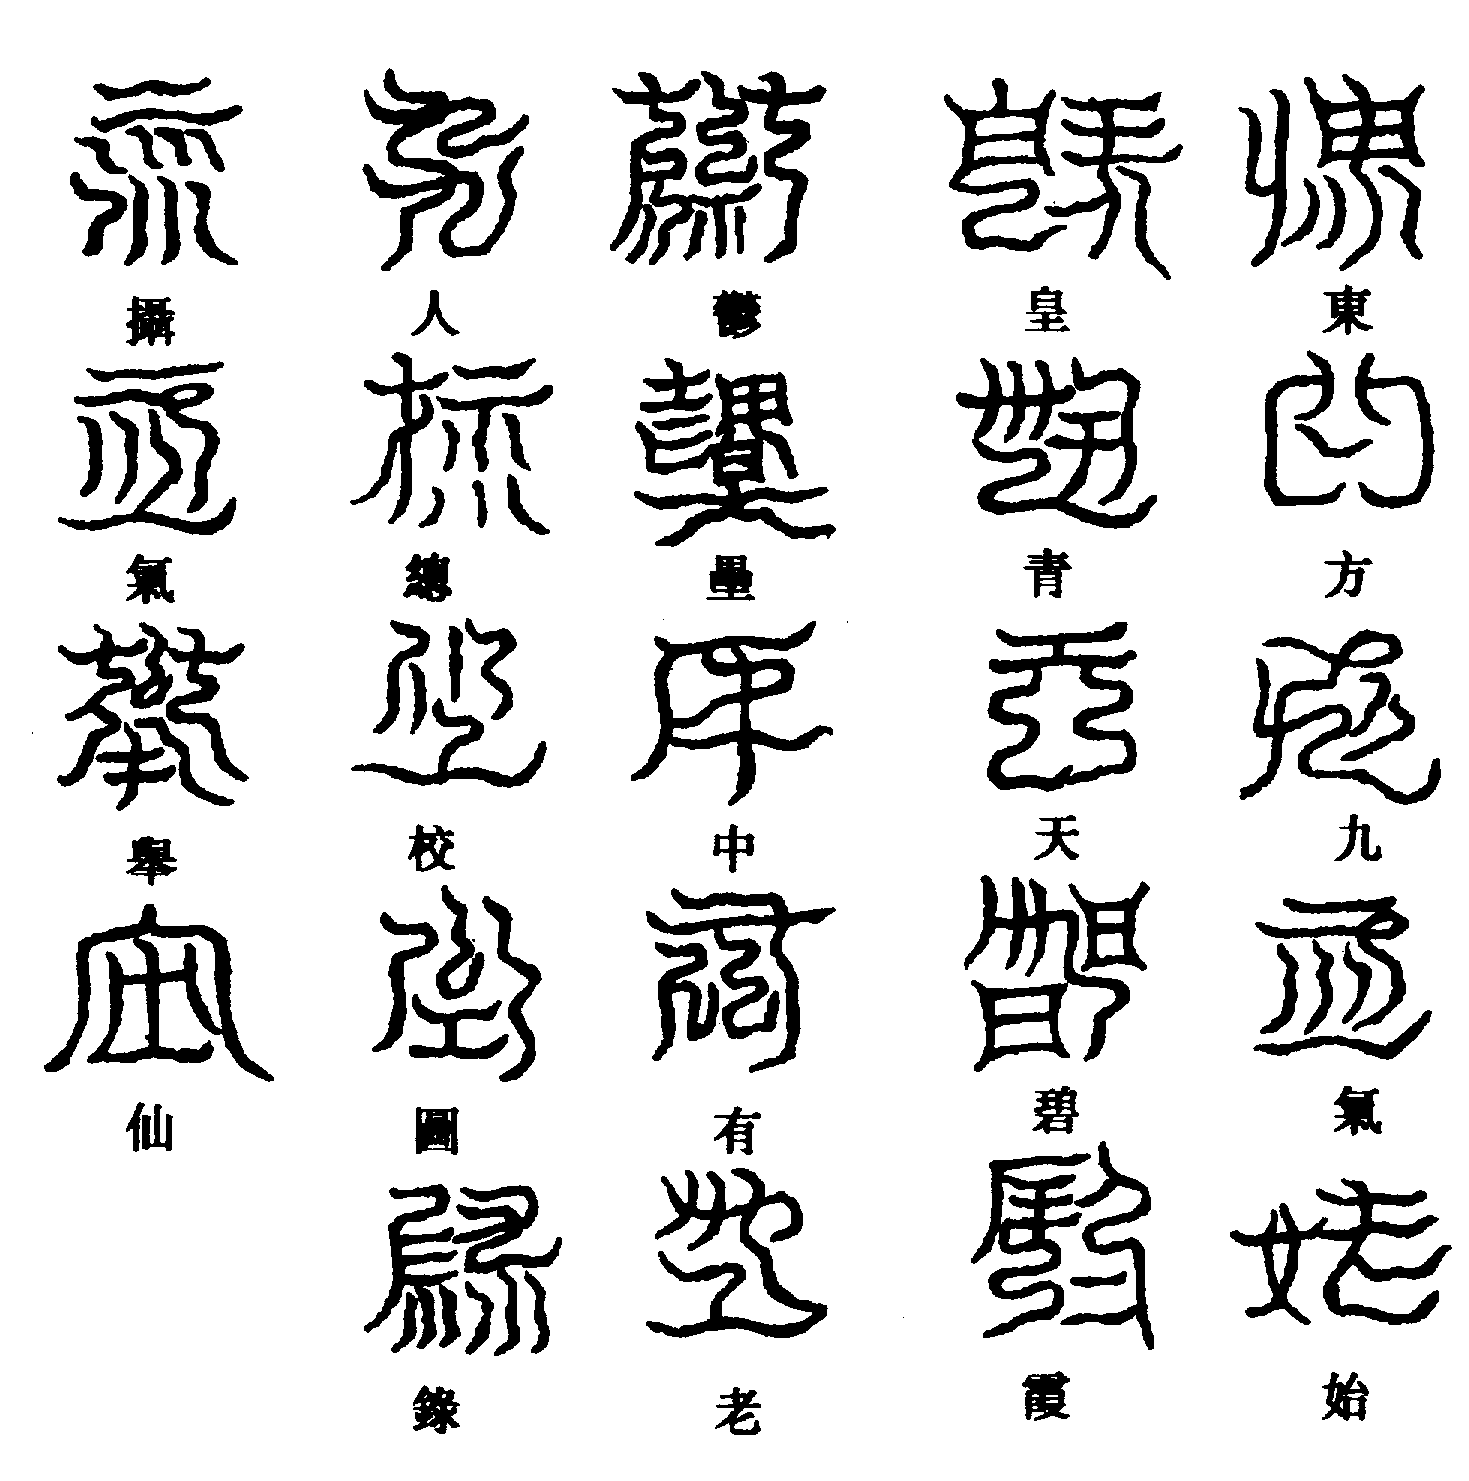 東方九氣始
皇青天碧霞
鬱壘中有老
人總校圖錄
攝氣舉仙